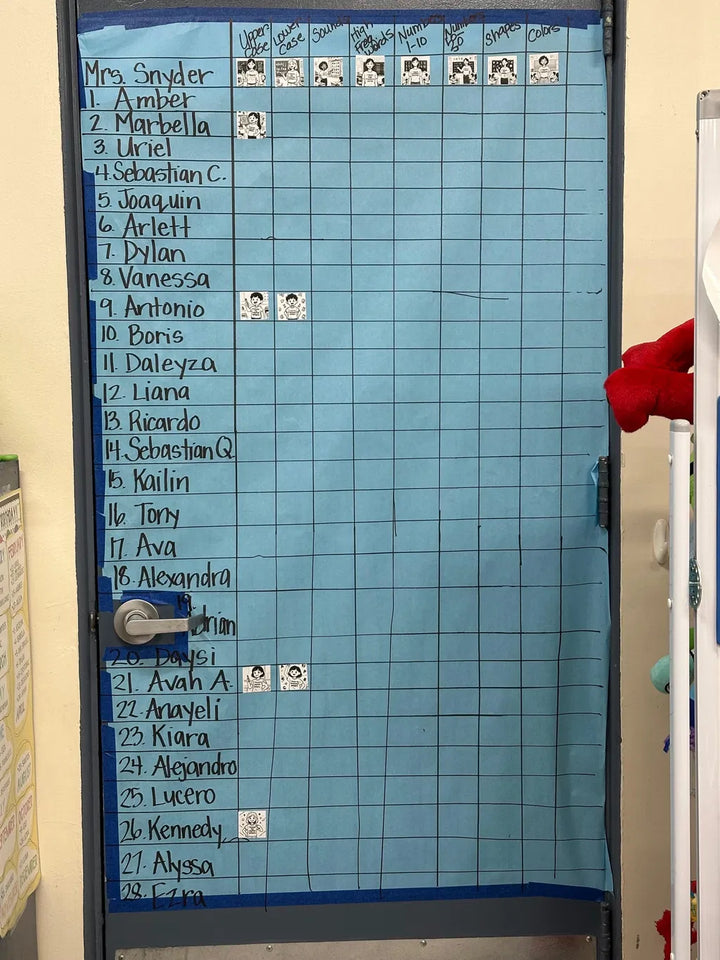 Upper case
Lower Case
Sounds
High Freq Words
Numbers 1-10
Numbers
Shapes
Colors
Mrs. Snyder
1. Amber
2. Marbella
3. Uriel
4. Sebastian C.
5. Joaquin
6. Arlett
7. Dylan
8. Vanessa
9. Antonio
10. Boris
11. Daleyza
12. Liana
13. Ricardo
14. Sebastian Q.
15. Kailin
16. Tony
17. Ava
18. Alexandra
19.
drian
20. Daysi
21. Avah A.
22. Anayeli
23. Kiara
24. Alejandro
25. Lucero
26. Kennedy
27. Alyssa
28. Ezra